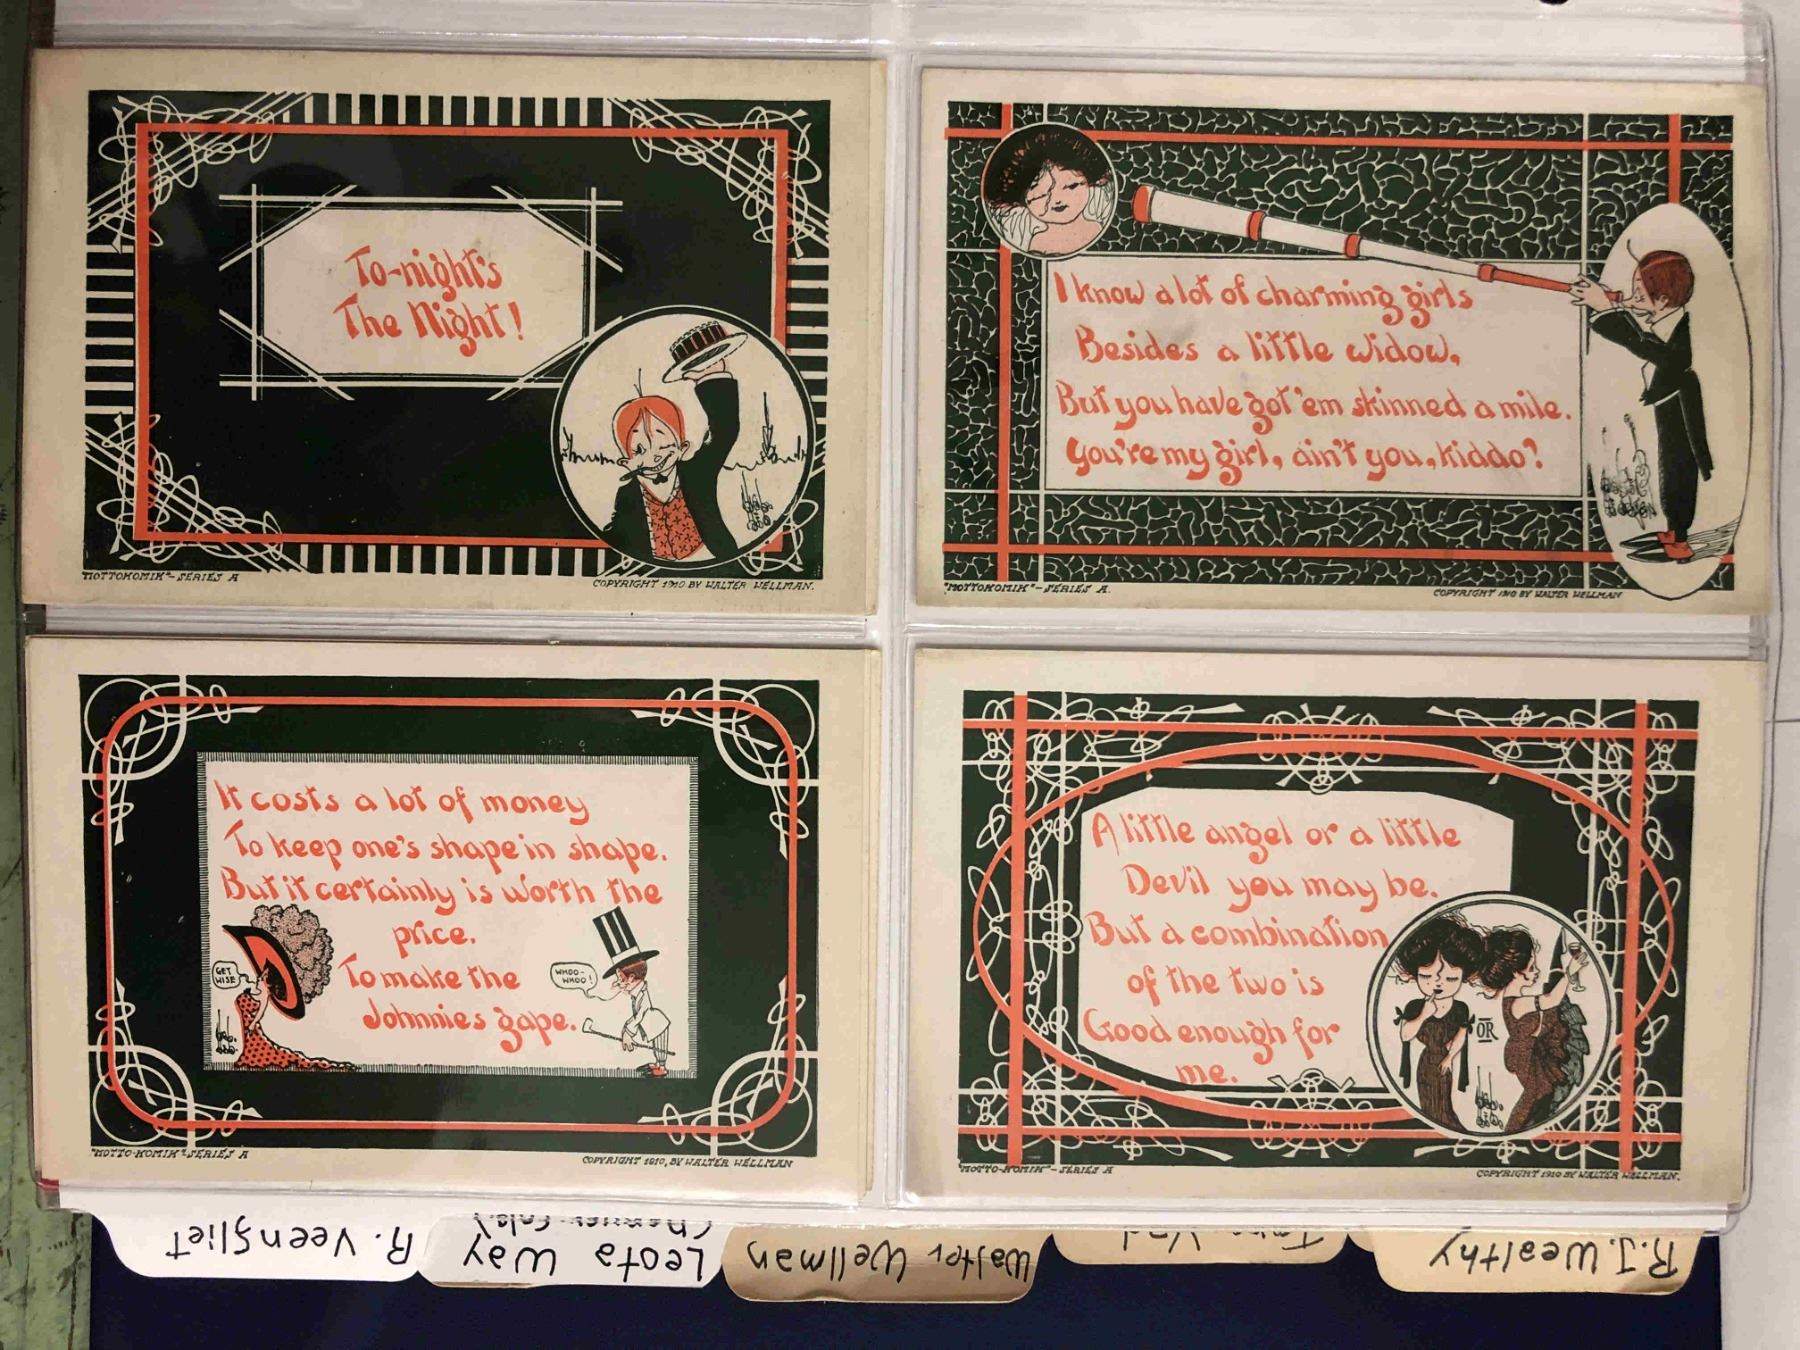 To-night's
The Night!
"MOTTOKOMIK"-SERIES A
COPYRIGHT 1910 BY WALTER WELLMAN.
I know a lot of charming girls
Besides a little widow,
But you have got 'em skinned a mile.
You're my girl, ain't you, kiddo?
"MOTTOKOMIK"-SERIES A.
COPYRIGHT 1910 BY WALTER WELLMAN
It costs a lot of money
To keep one's shape in shape.
But it certainly is worth the
price.
To make the
Johnnies gape.
GET
WISE
WHOO-
WHOO!
"MOTTO-KOMIK" SERIES A
COPYRIGHT 1910, BY WALTER WELLMAN
A little angel or a little
Devil you may be.
But a combination
of the two is
Good enough for
me.
OR
"MOTTO-KOMIK"-SERIES A
COPYRIGHT 1910 BY WALTER WELLMAN.
R. Veenfliet
Leota Way
Walter Wellman
R.J. Wealthy